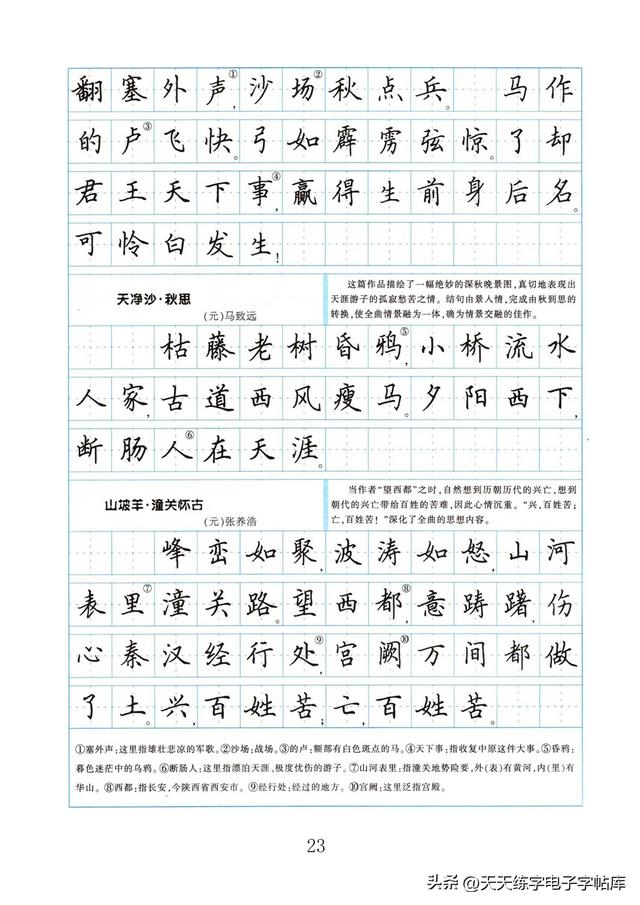 翻塞外声①,沙场②秋点兵。 马作
的卢③飞快。弓如霹雳弦惊。了却
君王天下事④,赢得生前身后名。
可怜白发生!
天净沙·秋思
(元)马致远
这篇作品描绘了一幅绝妙的深秋晚景图,真切地表现出
天涯游子的孤寂愁苦之情。结句由景入情,完成由秋到思的
转换,使全曲情景融为一体,确为情景交融的佳作。
枯藤老树昏鸦⑤,小桥流水
人家,古道西风瘦马。夕阳西下,
断肠人⑥在天涯。
山坡羊·潼关怀古
(元)张养浩
当作者“望西都”之时,自然想到历朝历代的兴亡,想到
朝代的兴亡带给百姓的苦难,因此心情沉重。“兴,百姓苦;
亡,百姓苦!”深化了全曲的思想内容。
峰峦如聚,波涛如怒,山河
表里⑦潼关路。望西都⑧,意踌躇,伤
心秦汉经行处⑨,宫阙⑩万间都做
了土。兴,百姓苦;亡,百姓苦。
①塞外声:这里指雄壮悲凉的军歌。②沙场:战场。③的卢:额部有白色斑点的马。④天下事:指收复中原这件大事。⑤昏鸦:
暮色迷茫中的乌鸦。⑥断肠人:这里指漂泊天涯、极度忧伤的游子。⑦山河表里:指潼关地势险要,外(表)有黄河,内(里)有
华山。⑧西都:指长安,今陕西省西安市。⑨经行处:经过的地方。⑩宫阙:这里泛指宫殿。
23
头条 @天天练字电子字帖库